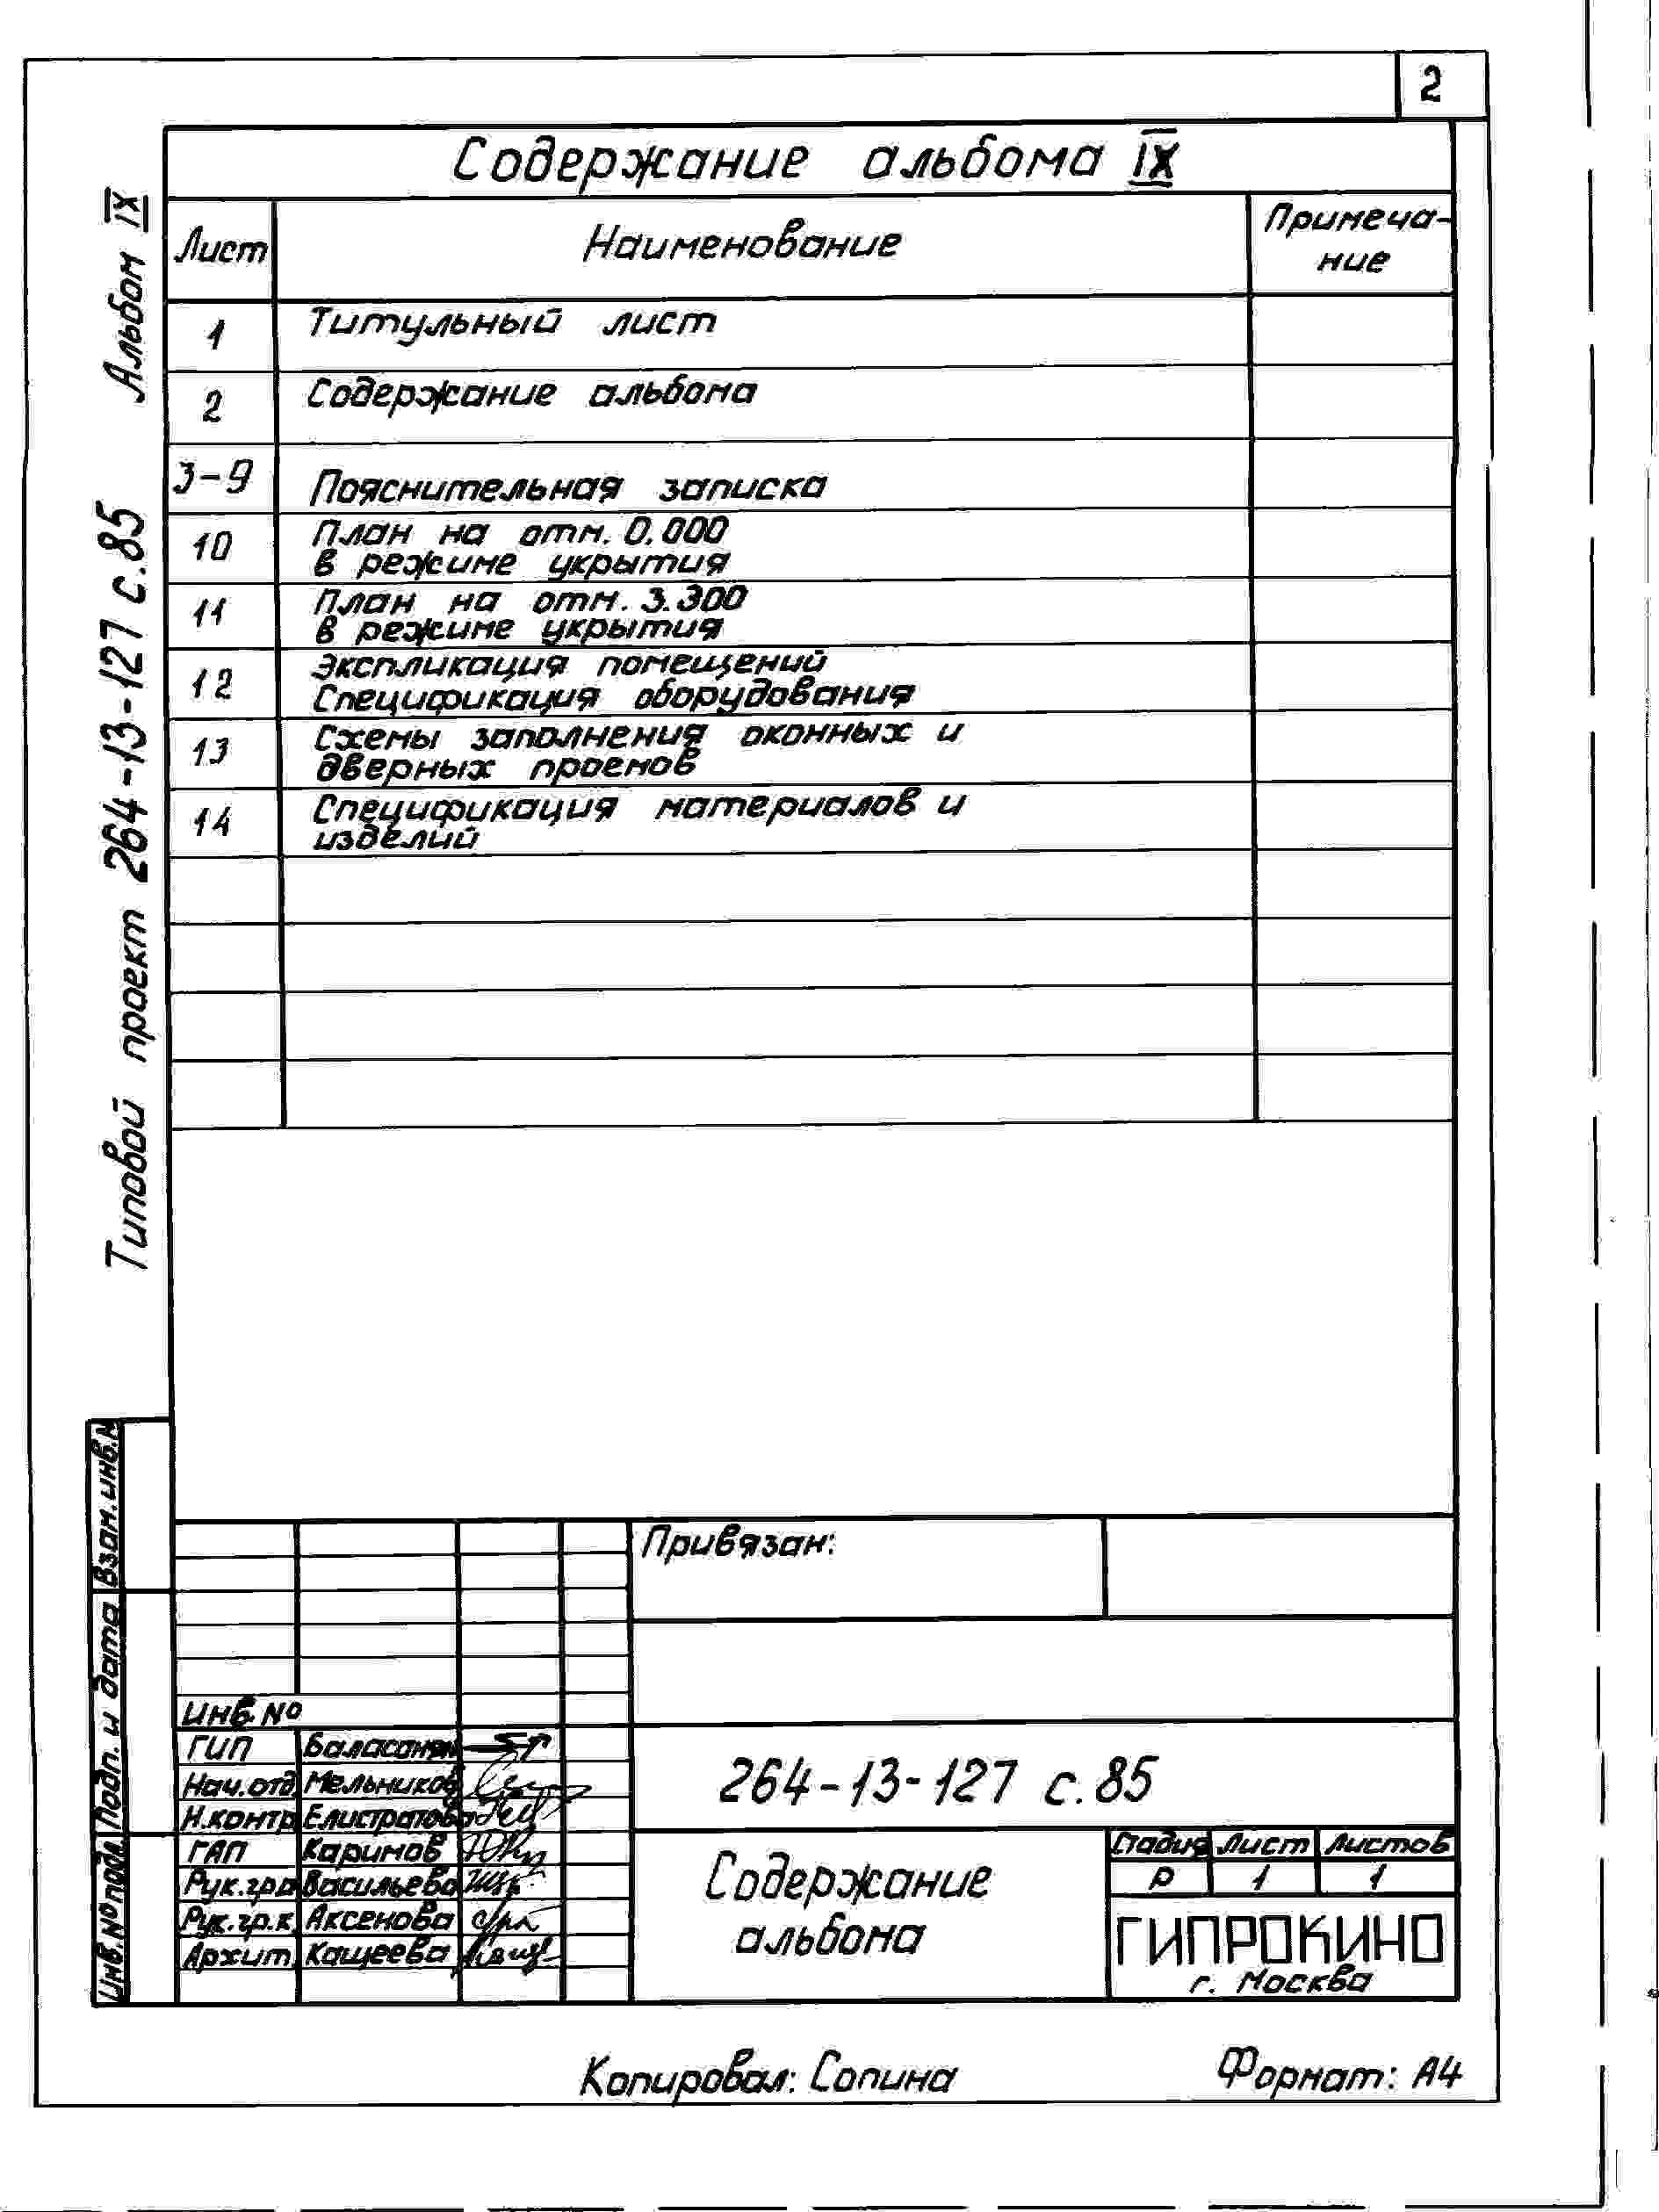 2
Содержание альбома IX
Лист
Наименование
Примеча-
ние
1
Титульный лист
2
Содержание альбома
3-9
Пояснительная записка
10
План на отм. 0.000
в режиме укрытия
11
План на отм. 3.300
в режиме укрытия
12
Экспликация помещений
Спецификация оборудования
13
Схемы заполнения оконных и
дверных проемов
14
Спецификация материалов и
изделий
Типовой проект 264-13-127 с.85 Альбом IX
Взам.инв.N
Подп. и дата
Инв.№подл.
Привязан:
Инв.№
ГИП Баласанян
Нач.отд. Мельников
Н.контр. Елистратова
ГАП Каримов
Рук.гр.а Васильева
Рук.гр.к. Аксенова
Архит. Кащеева
264-13-127 с.85
Содержание
альбома
Стадия Лист Листов
Р 1 1
ГИПРОКИНО
г. Москва
Копировал: Сопина
Формат: А4